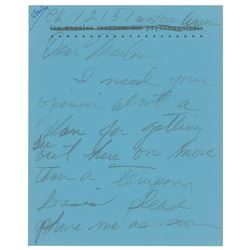 CR 12151
los angeles institute for psychoanalysis
Dear Marlon
I need your
opinion about a
plan for getting
out here on more
than a temporary
basis please
phone me as soon